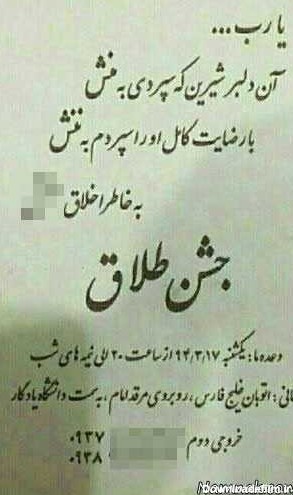 یا رب ...
آن دلبر شیرین که سپردی به منش
با رضایت کامل او را سپردم به ننش
به خاطر اخلاق
جشن طلاق
وعده ما : یکشنبه ۹۴,۳,۱۷ از ساعت ۲۰ الی نیمه های شب
نی : اتوبان خلیج فارس ، روبروی مرقد امام ، به سمت دانشگاه یادگار
خروجی دوم
۰۹۳۷
۰۹۳۸